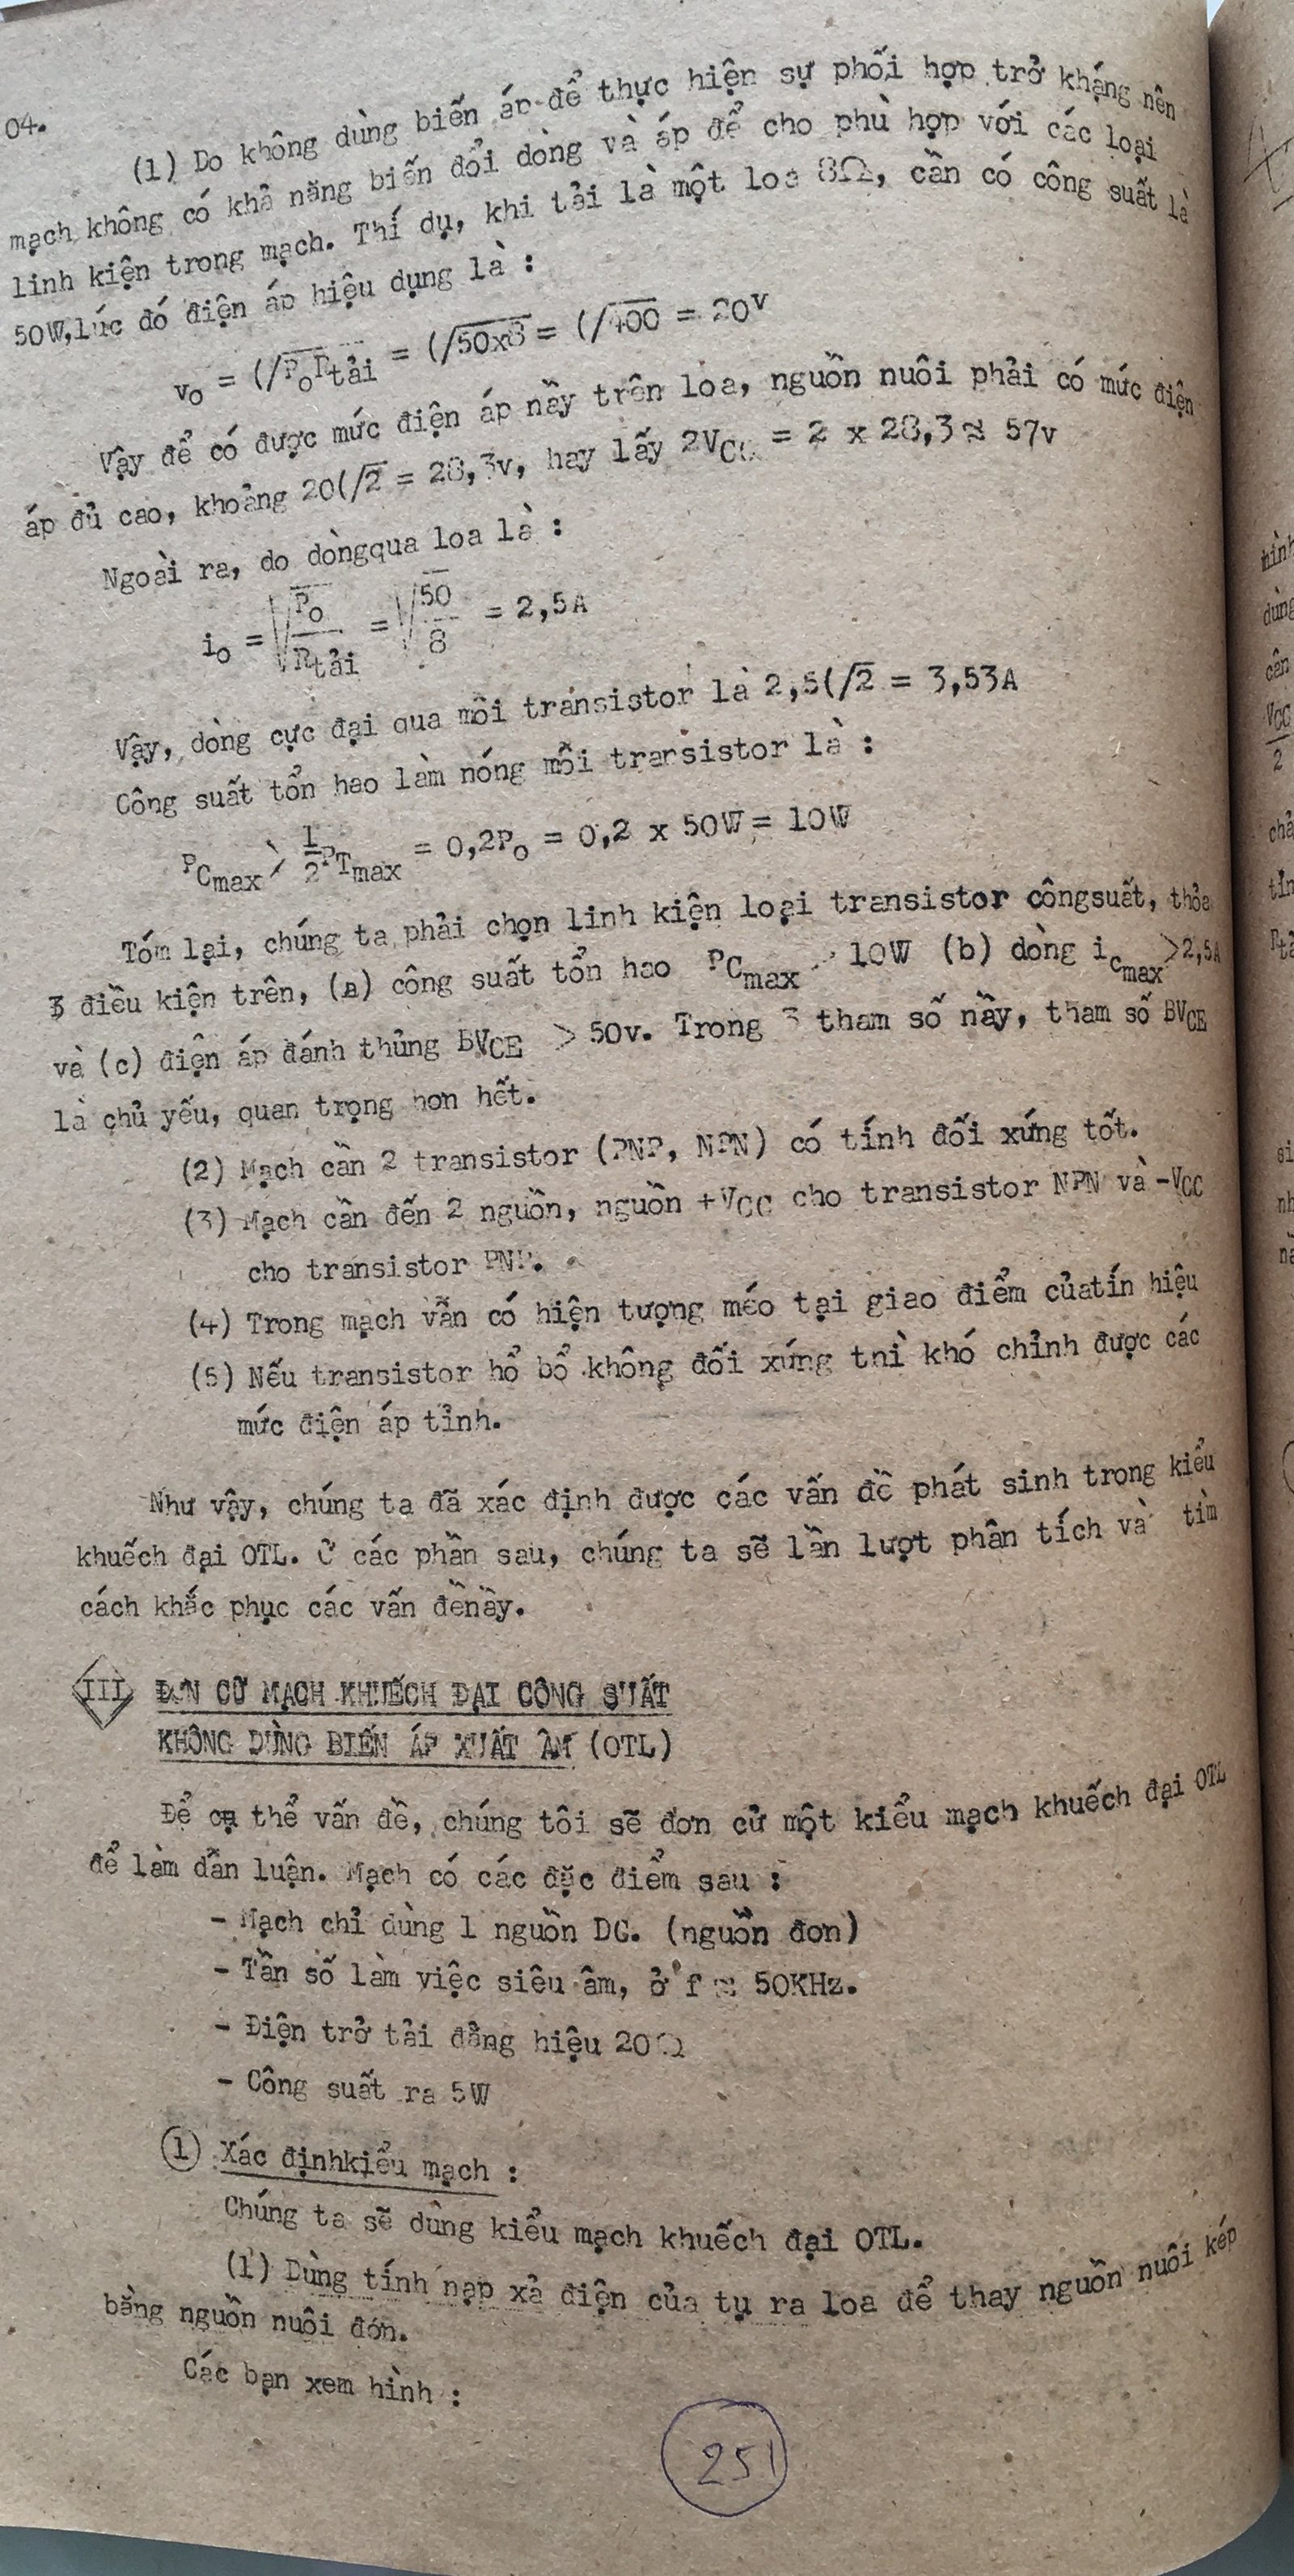 04.
(1) Do không dùng biến áp để thực hiện sự phối hợp trở kháng nên
mạch không có khả năng biến đổi dòng và áp để cho phù hợp với các loại
linh kiện trong mạch. Thí dụ, khi tải là một loa 8Ω, cần có công suất là
50W, lúc đó điện áp hiệu dụng là :
v₀ = (/P₀Rtải = (/50x8 = (/400 = 20v
Vậy để có được mức điện áp nầy trên loa, nguồn nuôi phải có mức điện
áp đủ cao, khoảng 20(/2 = 28,3v, hay lấy 2VCC = 2 x 28,3 ≈ 57v
Ngoài ra, do dòngqua loa là :
i₀ = √P₀/Rtải = √50/8 = 2,5A
Vậy, dòng cực đại qua mỗi transistor là 2,5(/2 = 3,53A
Công suất tổn hao làm nóng mỗi transistor là :
PCmax > 1/2 PTmax = 0,2P₀ = 0,2 x 50W = 10W
Tóm lại, chúng ta phải chọn linh kiện loại transistor côngsuất, thỏa
3 điều kiện trên, (a) công suất tổn hao PCmax > 10W (b) dòng iCmax >2,5A
và (c) điện áp đánh thủng BVCE > 50v. Trong 3 tham số nầy, tham số BVCE
là chủ yếu, quan trọng hơn hết.
(2) Mạch cần 2 transistor (PNP, NPN) có tính đối xứng tốt.
(3) Mạch cần đến 2 nguồn, nguồn +VCC cho transistor NPN và -VCC
cho transistor PNP.
(4) Trong mạch vẫn có hiện tượng méo tại giao điểm củatín hiệu
(5) Nếu transistor hổ bổ không đối xứng thì khó chỉnh được các
mức điện áp tỉnh.
Như vậy, chúng ta đã xác định được các vấn đề phát sinh trong kiểu
khuếch đại OTL. Ở các phần sau, chúng ta sẽ lần lượt phân tích và tìm
cách khắc phục các vấn đềnầy.
III ĐƠN CỬ MẠCH KHUẾCH ĐẠI CÔNG SUẤT
KHÔNG DÙNG BIẾN ÁP XUẤT ÂM (OTL)
Để cụ thể vấn đề, chúng tôi sẽ đơn cử một kiểu mạch khuếch đại OTL
để làm dẫn luận. Mạch có các đặc điểm sau :
- Mạch chỉ dùng 1 nguồn DC. (nguồn đơn)
- Tần số làm việc siêu âm, ở f ≈ 50KHz.
- Điện trở tải đẳng hiệu 20Ω
- Công suất ra 5W
1 Xác địnhkiểu mạch :
Chúng ta sẽ dùng kiểu mạch khuếch đại OTL.
(1) Dùng tính nạp xả điện của tụ ra loa để thay nguồn nuôi kép
bằng nguồn nuôi đơn.
Các bạn xem hình :
251